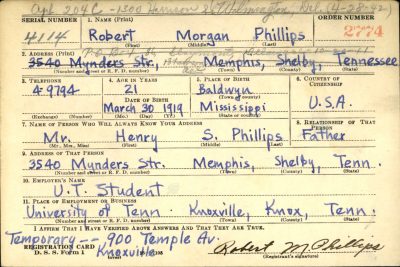 Apt 204C - 1300 Harrison St Wilmington, Del. (4-28-42)
SERIAL NUMBER 1. NAME (Print) ORDER NUMBER
4114 Robert Morgan Phillips 2774
(First) (Middle) (Last)
2. ADDRESS (Print)
3540 Mynders Str, Memphis, Shelby, Tennessee
(Number and street or R. F. D. number) (Town) (County) (State)
3. TELEPHONE 4. AGE IN YEARS 5. PLACE OF BIRTH 6. COUNTRY OF CITIZENSHIP
4-9794 21 Baldwyn
DATE OF BIRTH (Town or county)
March 30 1919 Mississippi U.S.A.
(Exchange) (Number) (Mo.) (Day) (Yr.) (State or country)
7. NAME OF PERSON WHO WILL ALWAYS KNOW YOUR ADDRESS 8. RELATIONSHIP OF THAT PERSON
Mr. Henry S. Phillips Father
(Mr., Mrs., Miss) (First) (Middle) (Last)
9. ADDRESS OF THAT PERSON
3540 Mynders Str. Memphis, Shelby, Tenn.
(Number and street or R. F. D. number) (Town) (County) (State)
10. EMPLOYER'S NAME
U.T. Student
11. PLACE OF EMPLOYMENT OR BUSINESS
University of Tenn. Knoxville, Knox, Tenn.
(Number and street or R. F. D. number) (Town) (County) (State)
I AFFIRM THAT I HAVE VERIFIED ABOVE ANSWERS AND THAT THEY ARE TRUE.
Temporary -- 900 Temple Av.
REGISTRATION CARD Knoxville Robert M Phillips
D. S. S. Form 1 (Registrant's signature)